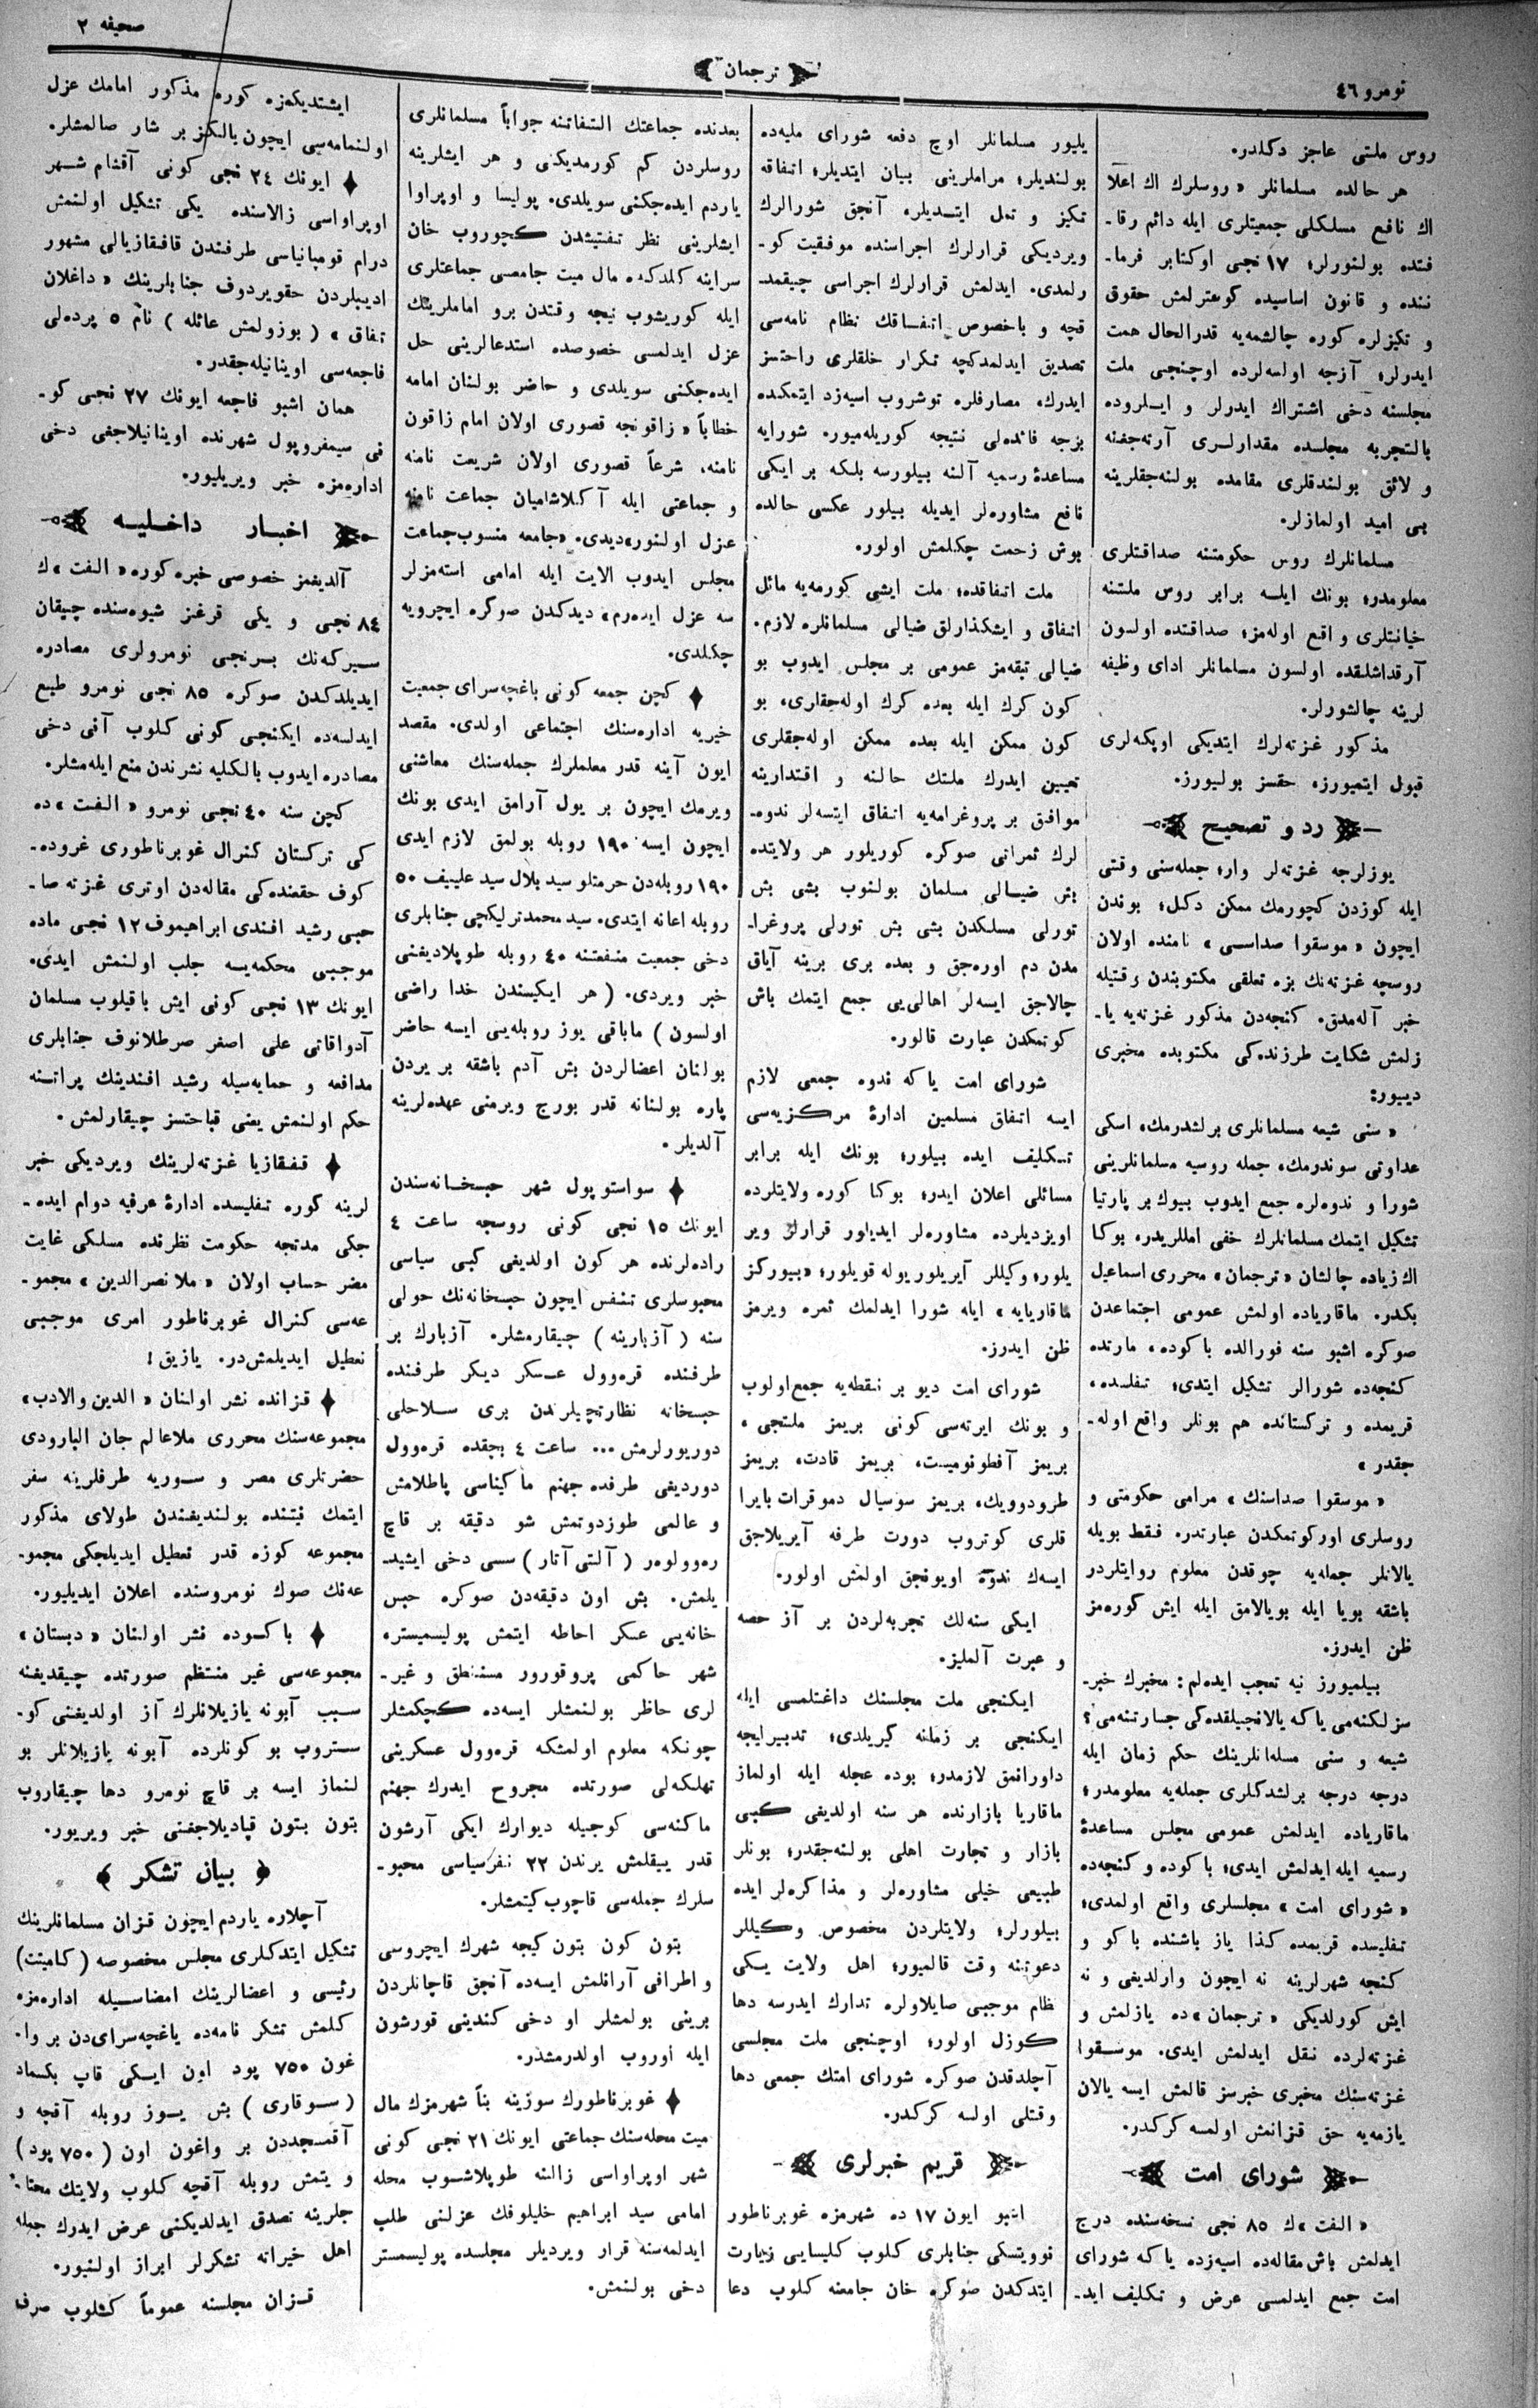 صحیفه ۲
ترجمان
نومرو ٤٦
روس ملتی عاجز دكلدر.
هر حالده مسلمانلر «روسلرك اك اعلا
اك نافع مسلكلی جمعیتلری ایله دائم رفا-
قتده بولنورلر؛ ۱۷ نجی اوكتابر فرما-
ننده و قانون اساسیده كوسترلمش حقوق
و تكیزلره كوره چالشمه‌یه قدرالحال همت
ایدرلر؛ آزجه اولسه‌لرده اوچنجی ملت
مجلسنه دخی اشتراك ایدرلر و ایلروده
بالتجربه مجلسده مقدارلری آرته‌جغنه
و لائق بولندقلری مقامده بولنه‌جقلرینه
بی امید اولمازلر.
مسلمانلرك روس حكومتنه صداقتلری
معلومدر؛ بونك ایله برابر روس ملتنه
خیانتلری واقع اوله‌مز؛ صداقتده اولسون
آرقداشلقده اولسون مسلمانلر ادای وظیفه
لرینه چالشورلر.
مذكور غزته‌لرك ایتدیكی اوپكه‌لری
قبول ایتمیورز، حقسز بولیورز.
رد و تصحیح
یوزلرجه غزته‌لر وار؛ جمله‌سنی وقتی
ایله كوزدن كچورمك ممكن دكل؛ بوندن
ایچون «موسقوا صداسی» نامنده اولان
روسچه غزته‌نك بزه تعلقی مكتوبندن وقتیله
خبر آله‌مدق. كنجه‌دن مذكور غزته‌یه یا-
زلمش شكایت طرزنده‌كی مكتوبده مخبری
دییور:
«سنی شیعه مسلمانلری برلشدرمك، اسكی
عداوتی سوندرمك، جمله روسیه مسلمانلرینی
شورا و ندوه‌لره جمع ایدوب بیوك بر پارتیا
تشكیل ایتمك مسلمانلرك خفی امللریدر، بوكا
اك زیاده چالشان «ترجمان» محرری اسماعیل
بكدر. ماقاریاده اولمش عمومی اجتماعدن
صوكره اشبو سنه فورالده باكوده، مارتده
كنجه‌ده شورالر تشكیل ایتدی؛ تفلیسده،
قریمده و تركستانده هم بونلر واقع اوله-
جقدر»
«موسقوا صداسنك» مرامی حكومتی و
روسلری اوركوتمكدن عبارتدر. فقط بویله
یالانلر جمله‌یه چوقدن معلوم روایتلردر
باشقه بویا ایله بویالامق ایله ایش كوره‌مز
ظن ایدرز.
بیلمیورز نیه تعجب ایده‌لم: مخبرك خبر-
سزلكنه‌می یاكه یالانجیلقده‌كی جسارتنه‌می؟
شیعه و سنی مسلمانلرینك حكم زمان ایله
درجه درجه برلشدكلری جمله‌یه معلومدر؛
ماقاریاده ایدلمش عمومی مجلس مساعدۀ
رسمیه ایله ایدلمش ایدی؛ باكوده و كنجه‌ده
«شورای امت» مجلسلری واقع اولمدی؛
تفلیسده قریمده كذا یاز باشنده باكو و
كنجه شهرلرینه نه ایچون وارلدیغی و نه
ایش كورلدیكی «ترجمان»ده یازلمش و
غزته‌لرده نقل ایدلمش ایدی. موسقوا
غزته‌سنك مخبری خبرسز قالمش ایسه یالان
یازمه‌یه حق قزانمش اولمسه كركدر.
شورای امت
«الفت»ك ۸۵ نجی نسخه‌سنده درج
ایدلمش باش مقاله‌ده اسیه‌زده یاكه شورای
امت جمع ایدلمسی عرض و تكلیف اید-
یلیور مسلمانلر اوچ دفعه شورای ملیه‌ده
بولندیلر؛ مراملرینی بیان ایتدیلر؛ اتفاقه
تكیز و تمل ایتدیلر، آنجق شورالرك
ویردیكی قرارلرك اجراسنده موفقیت كو-
رلمدی. ایدلمش قرارلرك اجراسی چیقمد-
قچه و باخصوص اتفاقك نظام نامه‌سی
تصدیق ایدلمدكچه تكرار خلقلری راحتسز
ایدرك، مصارفلره توشروب اسیه‌زد ایتمكده
بزجه فائده‌لی نتیجه كوریله‌میور، شورایه
مساعدۀ رسمیه آلنه بیلورسه بلكه بر ایكی
نافع مشاوره‌لر ایدیله بیلور عكسی حالده
بوش زحمت چكلمش اولور.
ملت اتفاقده؛ ملت ایشی كورمه‌یه مائل
اتفاق و ایشكذارلق ضیالی مسلمانلره لازم.
ضیالی تبقه‌مز عمومی بر مجلس ایدوب بو
كون كرك ایله بعده كرك اوله‌جقاری، بو
كون ممكن ایله بعده ممكن اوله‌جقلری
تعیین ایدرك ملتك حالنه و اقتدارینه
موافق بر پروغرامه‌یه اتفاق ایتسه‌لر ندوه-
لرك ثمراتی صوكره كوریلور هر ولایتده
بش ضیالی مسلمان بولنوب بشی بش
تورلی مسلكدن بشی بش تورلی پروغرا-
مدن دم اوره‌جق و بعده بری برینه آیاق
چالاجق ایسه‌لر اهالی‌یی جمع ایتمك باش
كوتمكدن عبارت قالور.
شورای امت یاكه ندوه جمعی لازم
ایسه اتفاق مسلمین ادارۀ مركزیه‌سی
تكلیف ایده بیلور؛ بونك ایله برابر
مسائلی اعلان ایدر؛ بوكا كوره ولایتلرده
اویزدیلرده مشاوره‌لر ایدیلور قرارلر ویر
یلور؛ وكیللر آیریلور یوله قویلور؛ «بییورگز
ماقاریایه» ایله شورا ایدلمك ثمره ویرمز
ظن ایدرز.
شورای امت دیو بر نقطه‌یه جمع اولوب
و بونك ایرته‌سی كونی بریمز ملتجی،
بریمز آفطونومیست، بریمز قادت، بریمز
طرودوویك، بریمز سوسیال دموقرات بایرا
قلری كوتروب دورت طرفه آیریلاجق
ایسه‌ك ندوه اویونجق اولمش اولور.
ایكی سنه‌لك تجربه‌لردن بر آز حصه
و عبرت آلملیز.
ایكنجی ملت مجلسنك داغتلمسی ایله
ایكنجی بر زمانه گیریلدی؛ تدبیرلیجه
داورانمق لازمدر؛ بوده عجله ایله اولماز
ماقاریا بازارنده هر سنه اولدیغی كبی
بازار و تجارت اهلی بولنه‌جقدر؛ بونلر
طبیعی خیلی مشاوره‌لر و مذاكره‌لر ایده
بیلورلر؛ ولایتلردن مخصوص وكیللر
دعوتنه وقت قالمیور؛ اهل ولایت یكی
نظام موجبی صایلاولره تدارك ایدرسه دها
كوزل اولور؛ اوچنجی ملت مجلسی
آچلدقدن صوكره شورای امتك جمعی دها
وقتلی اولسه كركدر.
قریم خبرلری
اشبو ایون ۱۷ ده شهرمزه غوبرناطور
نوویتسكی جنابلری كلوب كلیسایی زیارت
ایتدكدن صوكره خان جامعنه كلوب دعا
بعدنده جماعتك التفاتنه جواباً مسلمانلری
روسلردن كم كورمدیكنی و هر ایشلرینه
یاردم ایده‌جكنی سویلدی. پولیسا و اوپراوا
ایشلرینی نظر تفتیشدن كچوروب خان
سراینه كلدكده مال میت جامعسی جماعتلری
ایله كوریشوب نیجه وقتدن برو اماملرینك
عزل ایدلمسی خصوصده استدعالرینی حل
ایده‌جكنی سویلدی و حاضر بولنان امامه
خطاباً «زاقونجه قصوری اولان امام زاقون
نامنه، شرعاً قصوری اولان شریعت نامنه
و جماعتی ایله آكلاشامیان جماعت نامنه
عزل اولنور» دیدی. «جامعه منسوب جماعت
مجلس ایدوب الایت ایله امامی استه‌مزلر
سه عزل ایده‌رم» دیدكدن صوكره ایچرویه
چكلدی.
كچن جمعه كونی باغچه‌سرای جمعیت
خیریه اداره‌سنك اجتماعی اولدی. مقصد
ایون آینه قدر معلملرك جمله‌سنك معاشنی
ویرمك ایچون بر یول آرامق ایدی بونك
ایچون ایسه ۱۹۰ روبله بولمق لازم ایدی
۱۹۰ روبله‌دن حرمتلو سید بلال سید علییف ۵۰
روبله اعانه ایتدی. سید محمد ترلیكچی جنابلری
دخی جمعیت منفعتنه ٤۰ روبله طوپلادیغنی
خبر ویردی. (هر ایكیسندن خدا راضی
اولسون) ماباقی یوز روبله‌یی ایسه حاضر
بولنان اعضالردن بش آدم باشقه بریردن
پاره بولنانه قدر بورج ویرمنی عهده‌لرینه
آلدیلر.
سواستوپول شهر حبسخانه‌سندن
ایونك ۱۵ نجی كونی روسجه ساعت ٤
راده‌لرنده هر كون اولدیغی كبی سیاسی
محبوسلری تنفس ایچون حبسخانه‌نك حولی
سنه (آزبارینه) چیقارمشلر. آزبارك بر
طرفنده قره‌وول عسكر دیكر طرفنده
حبسخانه نظارتچیلرندن بری سلاحلی
دوریورلرمش... ساعت ٤ بچقده قره‌وول
دوردیغی طرفده جهنم ماكیناسی پاطلامش
و عالمی طوزدوتمش شو دقیقه بر قاچ
ره‌وولوه‌ر (آلتی آتار) سسی دخی ایشید-
یلمش. بش اون دقیقه‌دن صوكره حبس
خانه‌یی عسكر احاطه ایتمش پولیسمیستر،
شهر حاكمی پروقورور مستنطق و غیر-
لری حاظر بولنمشلر ایسه‌ده كچكمشلر
چونكه معلوم اولمشكه قره‌وول عسكرینی
تهلكه‌لی صورتده مجروح ایدرك جهنم
ماكنه‌سی كوجیله دیوارك ایكی آرشون
قدر ییقلمش یرندن ۲۲ نفر سیاسی محبو-
سلرك جمله‌سی قاچوب كیتمشلر.
بتون كون بتون كیجه شهرك ایچروسی
و اطرافی آرانلمش ایسه‌ده آنجق قاچانلردن
برینی بولمشلر او دخی كندینی قورشون
ایله اوروب اولدرمشدر.
غوبرناطورك سوزینه بناً شهرمزك مال
میت محله‌سنك جماعتی ایونك ۲۱ نجی كونی
شهر اوپراواسی زالنه طوپلاشوب محله
امامی سید ابراهیم خلیلوفك عزلنی طلب
ایدلمه‌سنه قرار ویردیلر مجلسده پولیسمستر
دخی بولنمش.
ایشتدیكمزه كوره مذكور امامك عزل
اولنمامه‌سی ایچون یالكز بر شار صالمشلر.
ایونك ۲٤ نجی كونی آقشام شهر
اوپراواسی زالاسنده یكی تشكیل اولنمش
درام قومپانیاسی طرفندن قافقازیالی مشهور
ادیبلردن حقویردوف جنابلرینك «داغلان
تفاق» (بوزولمش عائله) نام ۵ پرده‌لی
فاجعه‌سی اوینانیله‌جقدر.
همان اشبو فاجعه ایونك ۲۷ نجی كو-
نی سیمفروپول شهرنده اوینانیلاجغی دخی
اداره‌مزه خبر ویریلیور.
اخبار داخلیه
آلدیغمز خصوصی خبره كوره «الفت»ك
۸٤ نجی و یكی قرغز شیوه‌سنده چیقان
سیركه‌نك برنجی نومرولری مصادره
ایدیلدكدن صوكره ۸۵ نجی نومرو طبع
ایدلسه‌ده ایكنجی كونی كلوب آنی دخی
مصادره ایدوب بالكلیه نشرندن منع ایله‌مشلر.
كچن سنه ٤۰ نجی نومرو «الفت»ده
كی تركستان كنرال غوبرناطوری غروده-
كوف حقمنده‌كی مقاله‌دن اوتری غزته صا-
حبی رشید افندی ابراهیموف ۱۲ نجی ماده
موجبی محكمه‌یه جلب اولنمش ایدی.
ایونك ۱۳ نجی كونی ایش باقیلوب مسلمان
آدواقاتی علی اصغر صرطلانوف جنابلری
مدافعه و حمایه‌سیله رشید افندینك برائتنه
حكم اولنمش یعنی قباحتسز چیقارلمش.
قفقازیا غزته‌لرینك ویردیكی خبر
لرینه كوره تفلیسده ادارۀ عرفیه دوام ایده-
جكی مدتجه حكومت نظرنده مسلكی غایت
مضر حساب اولان «ملا نصرالدین» مجمو-
عه‌سی كنرال غوبرناطور امری موجبی
تعطیل ایدیلمش‌در. یازیق!
قزانده نشر اولنان «الدین والادب»
مجموعه‌سنك محرری ملا عالم جان البارودی
حضرتلری مصر و سوریه طرفلرینه سفر
ایتمك نیتنده بولندیغندن طولای مذكور
مجموعه كوزه قدر تعطیل ایدیلجكی مجمو-
عه‌نك صوك نومروسنده اعلان ایدیلیور.
باكوده نشر اولنان «دبستان»
مجموعه‌سی غیر منتظم صورتده چیقدیغنه
سبب آبونه یازیلانلرك آز اولدیغنی كو-
ستروب بو كونلرده آبونه یازیلانلر بو
لنماز ایسه بر قاچ نومرو دها چیقاروب
بتون بتون قپادیلاجغنی خبر ویریور.
بیان تشكر
آچلاره یاردم ایچون قزان مسلمانلرینك
تشكیل ایتدكلری مجلس مخصوصه (كامیتت)
رئیسی و اعضالرینك امضاسیله اداره‌مزه
كلمش تشكر نامه‌ده باغچه‌سرای‌دن بر وا-
غون ۷۵۰ پود اون ایكی قاپ بكسماد
(سوقاری) بش یوز روبله آقچه و
آقمسجددن بر واغون اون (۷۵۰ پود)
و یتمش روبله آقچه كلوب ولایتك محتا-
جلرینه تصدق ایدلدیكنی عرض ایدرك جمله
اهل خیراته تشكرلر ابراز اولنیور.
قزان مجلسنه عموماً كشلوب صرف